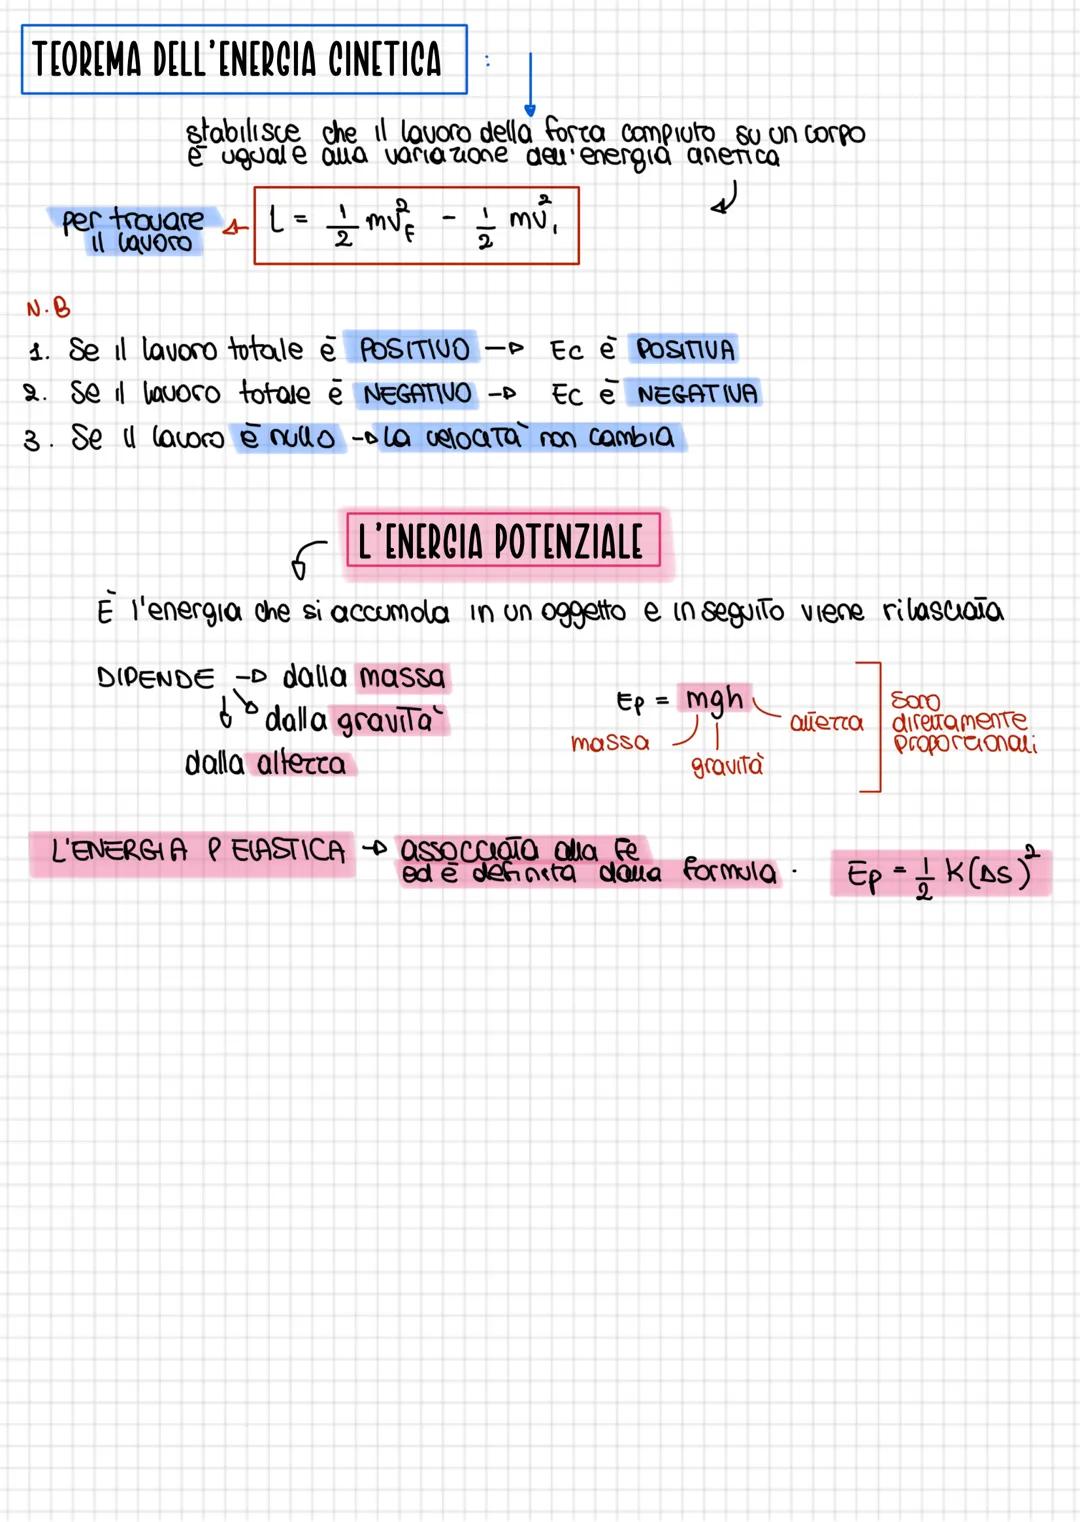 TEOREMA DELL'ENERGIA CINETICA :
stabilisce che il lavoro della forza compiuto su un corpo
è uguale alla variazione dell'energia cinetica
per trovare
il lavoro
L = 1/2 mv²F - 1/2 mv²i
N.B
1. Se il lavoro totale è POSITIVO → Ec è POSITIVA
2. Se il lavoro totale è NEGATIVO → Ec è NEGATIVA
3. Se il lavoro è nullo → la velocità non cambia
L'ENERGIA POTENZIALE
È l'energia che si accumola in un oggetto e in seguito viene rilasciata
DIPENDE → dalla massa
dalla gravità
dalla altezza
Ep = mgh
massa
gravità
altezza
sono
direttamente
proporzionali
L'ENERGIA P ELASTICA → assocciata alla Fe
ed è definita dalla formula.
Ep = 1/2 K(Δs)²